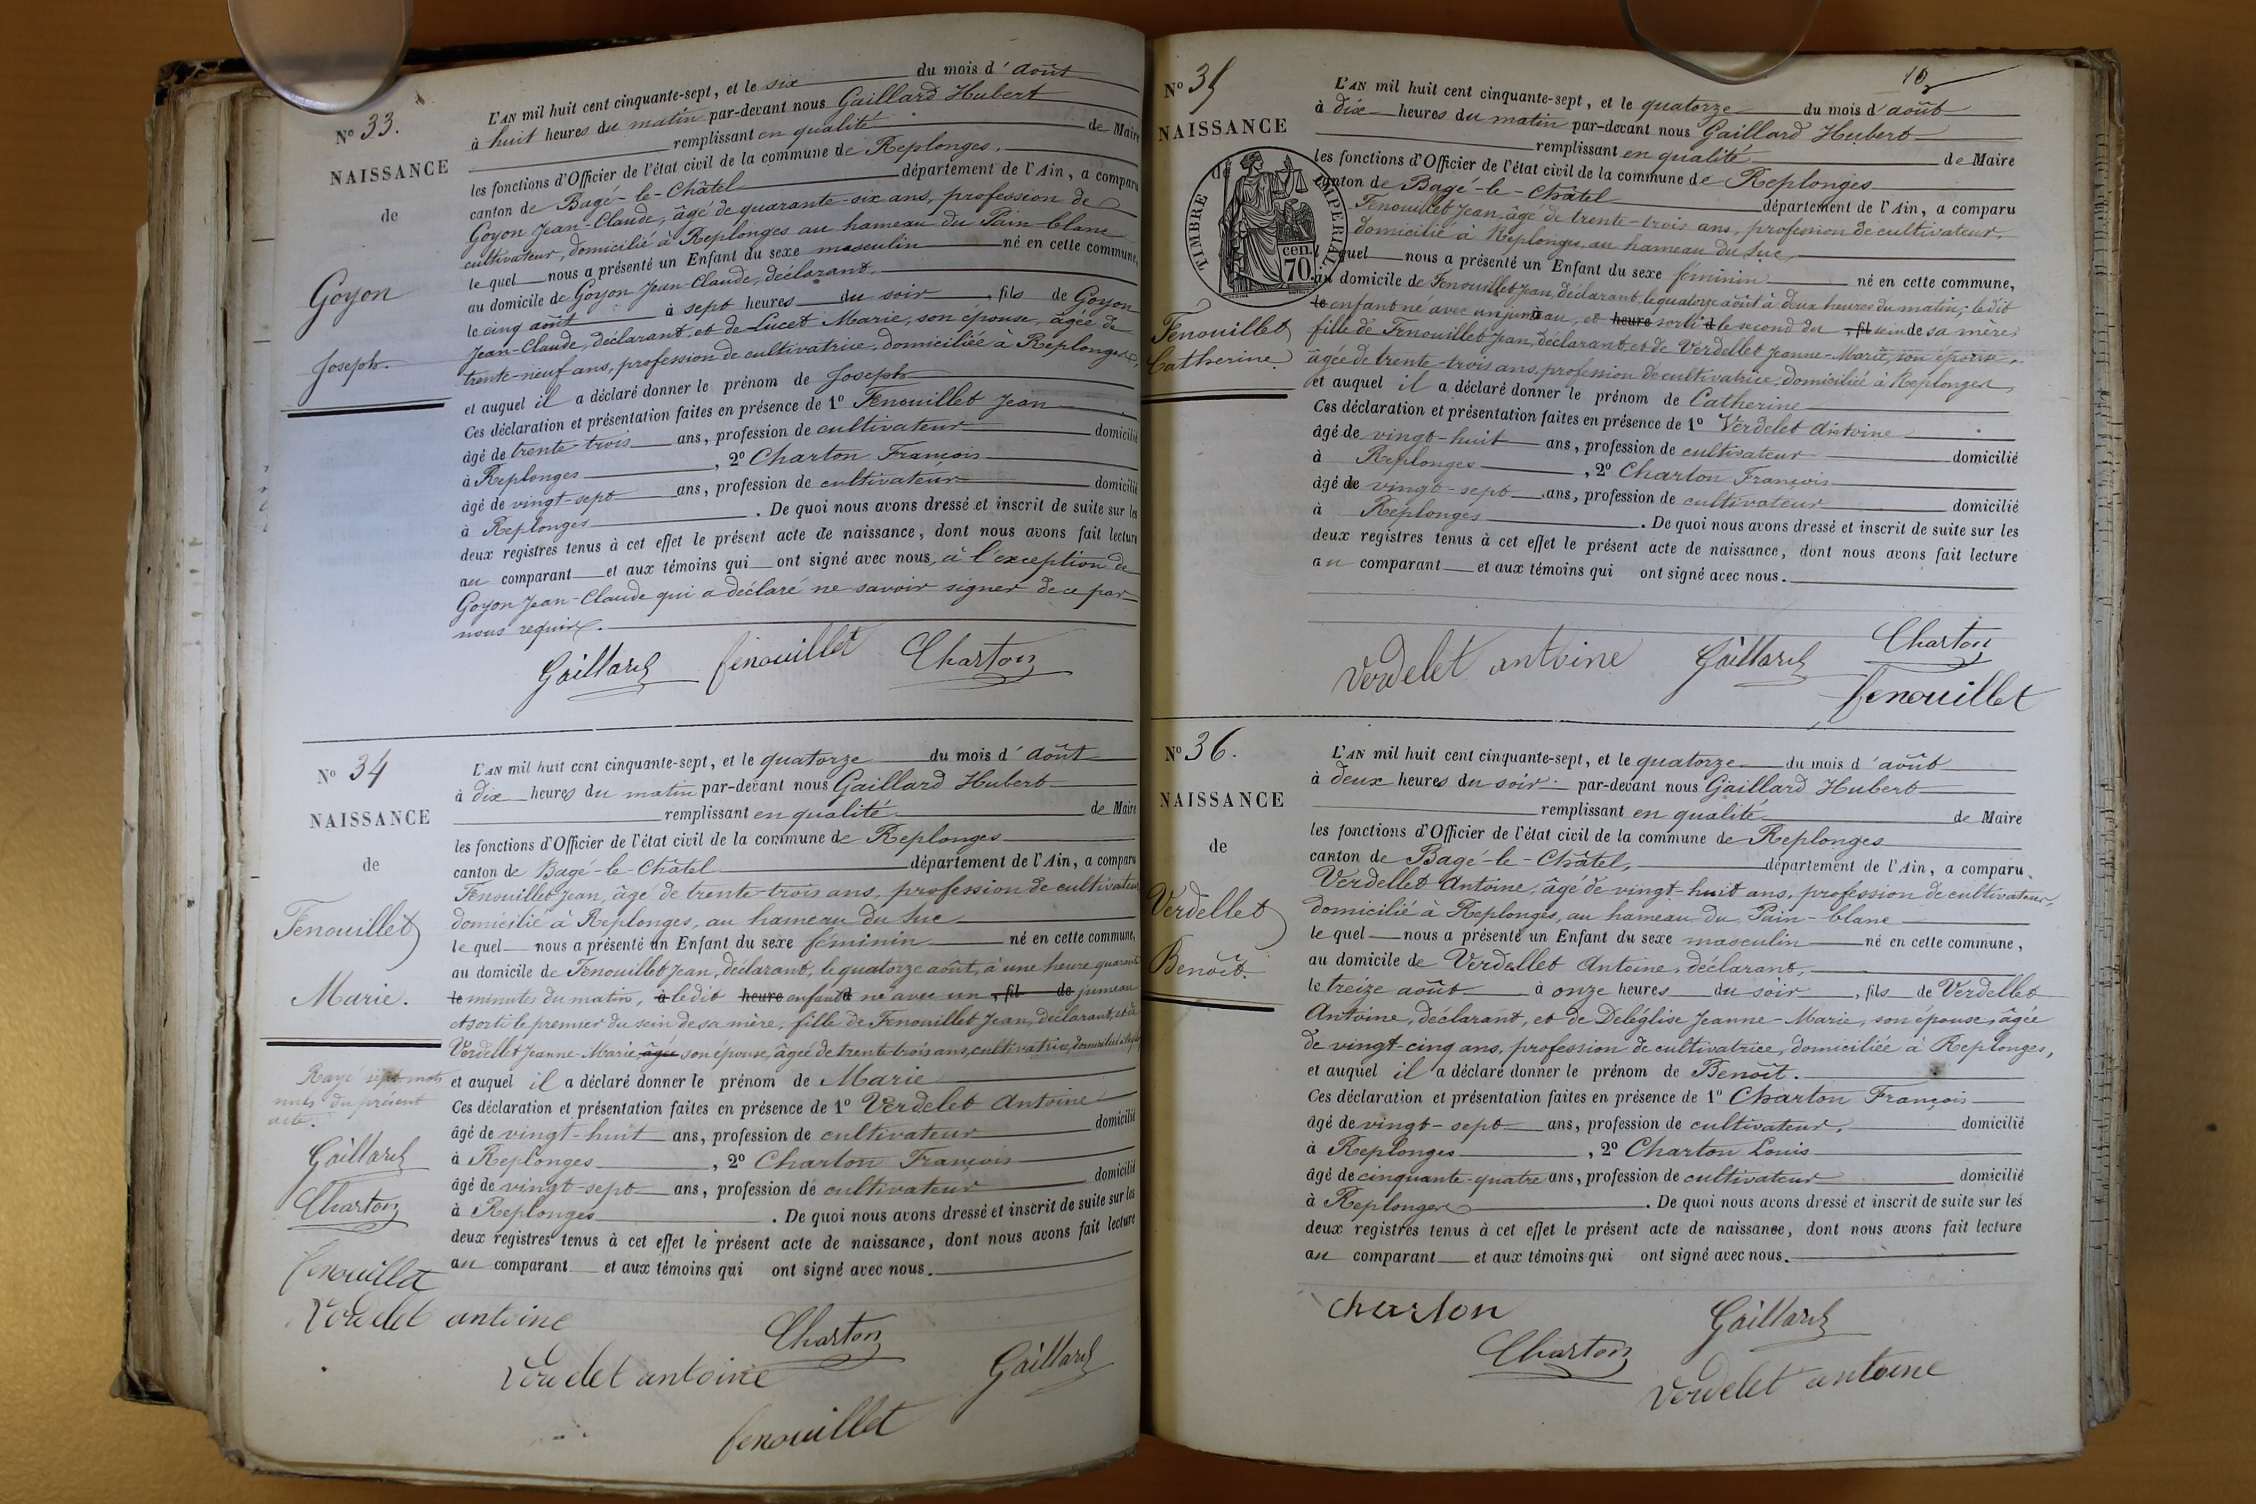 N° 33.
NAISSANCE
de
Goyon
Joseph.
L'AN mil huit cent cinquante-sept, et le six du mois d'août
à huit heures du matin par-devant nous Gaillard Hubert
remplissant en qualité de Maire
les fonctions d'Officier de l'état civil de la commune de Replonges.
canton de Bagé-le-Châtel département de l'Ain, a comparu
Goyon Jean-Claude, âgé de quarante-six ans, profession de
cultivateur, domicilié à Replonges au hameau du Pain-blanc
le quel nous a présenté un Enfant du sexe masculin né en cette commune,
au domicile de Goyon Jean-Claude, déclarant,
le cinq août à sept heures du soir, fils de Goyon
Jean-Claude, déclarant, et de Lucet Marie, son épouse, âgée de
trente-neuf ans, profession de cultivatrice, domiciliée à Replonges,
et auquel il a déclaré donner le prénom de Joseph
Ces déclaration et présentation faites en présence de 1° Fenouillet Jean
âgé de trente-trois ans, profession de cultivateur domicilié
à Replonges, 2° Charton François
âgé de vingt-sept ans, profession de cultivateur domicilié
à Replonges. De quoi nous avons dressé et inscrit de suite sur les
deux registres tenus à cet effet le présent acte de naissance, dont nous avons fait lecture
au comparant et aux témoins qui ont signé avec nous, à l'exception de
Goyon Jean-Claude qui a déclaré ne savoir signer de ce par
nous requis.
Gaillard fenouillet Charton
N° 34
NAISSANCE
de
Fenouillet
Marie.
Rayé sept mots
nuls du présent
acte.
Gaillard
Charton
fenouillet
Verdelet antoine
L'AN mil huit cent cinquante-sept, et le quatorze du mois d'août
à dix heures du matin par-devant nous Gaillard Hubert
remplissant en qualité de Maire
les fonctions d'Officier de l'état civil de la commune de Replonges
canton de Bagé-le-Châtel département de l'Ain, a comparu
Fenouillet Jean, âgé de trente-trois ans, profession de cultivateur
domicilié à Replonges, au hameau du Suc
le quel nous a présenté un Enfant du sexe féminin né en cette commune,
au domicile de Fenouillet Jean, déclarant, le quatorze août, à une heure quarante
le minutes du matin, à ledit heure enfant d né avec un , fil de jumeau
et sorti le premier du sein de sa mère, fille de Fenouillet Jean, déclarant, et de
Verdellet Jeanne-Marie âgée son épouse, âgée de trente-trois ans, cultivatrice, domiciliée à
et auquel il a déclaré donner le prénom de Marie
Ces déclaration et présentation faites en présence de 1° Verdelet Antoine
âgé de vingt-huit ans, profession de cultivateur domicilié
à Replonges, 2° Charton François
âgé de vingt-sept ans, profession de cultivateur domicilié
à Replonges. De quoi nous avons dressé et inscrit de suite sur les
deux registres tenus à cet effet le présent acte de naissance, dont nous avons fait lecture
au comparant et aux témoins qui ont signé avec nous.
Verdelet antoine Charton Gaillard
fenouillet
N° 35
NAISSANCE
de
TIMBRE IMPERIAL.
cen. 70.
Fenouillet
Catherine
L'AN mil huit cent cinquante-sept, et le quatorze du mois d'août
à dix heures du matin par-devant nous Gaillard Hubert
remplissant en qualité de Maire
les fonctions d'Officier de l'état civil de la commune de Replonges
canton de Bagé-le-Châtel département de l'Ain, a comparu
Fenouillet Jean, âgé de trente-trois ans, profession de cultivateur
domicilié à Replonges, au hameau du Suc,
le quel nous a présenté un Enfant du sexe féminin né en cette commune,
au domicile de Fenouillet Jean, déclarant, le quatorze août à deux heures du matin; le dit
le enfant né avec un jumeau, et heure sorti d le second du , fil sein de sa mère,
fille de Fenouillet Jean, déclarant et de Verdellet Jeanne-Marie, son épouse,
âgée de trente-trois ans, profession de cultivatrice, domiciliée à Replonges
et auquel il a déclaré donner le prénom de Catherine
Ces déclaration et présentation faites en présence de 1° Verdelet Antoine
âgé de vingt-huit ans, profession de cultivateur domicilié
à Replonges, 2° Charton François
âgé de vingt-sept ans, profession de cultivateur domicilié
à Replonges. De quoi nous avons dressé et inscrit de suite sur les
deux registres tenus à cet effet le présent acte de naissance, dont nous avons fait lecture
au comparant et aux témoins qui ont signé avec nous.
Verdelet antoine Gaillard Charton
fenouillet
N° 36.
NAISSANCE
de
Verdellet
Benoît.
L'AN mil huit cent cinquante-sept, et le quatorze du mois d'août
à deux heures du soir par-devant nous Gaillard Hubert
remplissant en qualité de Maire
les fonctions d'Officier de l'état civil de la commune de Replonges
canton de Bagé-le-Châtel, département de l'Ain, a comparu
Verdellet Antoine, âgé de vingt-huit ans, profession de cultivateur,
domicilié à Replonges, au hameau du Pain-blanc
le quel nous a présenté un Enfant du sexe masculin né en cette commune,
au domicile de Verdellet Antoine, déclarant,
le treize août à onze heures du soir, fils de Verdellet
Antoine, déclarant, et de Deléglise Jeanne-Marie, son épouse, âgée
de vingt-cinq ans, profession de cultivatrice, domiciliée à Replonges,
et auquel il a déclaré donner le prénom de Benoît.
Ces déclaration et présentation faites en présence de 1° Charton François
âgé de vingt-sept ans, profession de cultivateur, domicilié
à Replonges, 2° Charton Louis
âgé de cinquante-quatre ans, profession de cultivateur domicilié
à Replonges. De quoi nous avons dressé et inscrit de suite sur les
deux registres tenus à cet effet le présent acte de naissance, dont nous avons fait lecture
au comparant et aux témoins qui ont signé avec nous.
Charton Gaillard
Charton Verdelet antoine